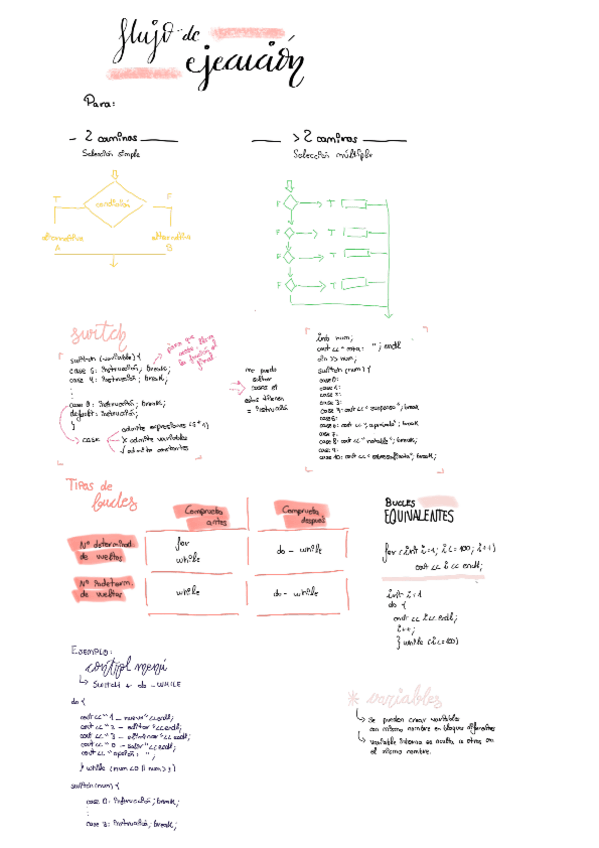 flujo de
ejecución
Para:
- 2 caminos
Selección simple
> 2 caminos
Selección múltiple
condición
T
F
alternativa
A
alternativa
B
F T
F T
F T
F T
switch
switch (variable) {
case 5: Instrucción; break;
case 4: Instrucción; break;
:
case 8: Instrucción; break;
default: Instrucción;
}
case
admite expresiones
x admite variables
√ admite constantes
para que
final
me puedo
saltar
cosas si
estas tienen
= instrucción
int num;
"; endl
cin >> num;
switch (num) {
case 1:
case 3:
case 4: cout << "suspenso"; break;
case 6: cout << "aprobado"; break;
case 7:
case 8: cout << "notable"; break;
case 9:
case 10: cout << "sobresaliente"; break;
Tipos de
bucles
Comprueba
antes
Comprueba
después
Nº determinad.
de vueltas
for
while
do - while
Nº Indeterm.
de vueltas
while
do - while
BUCLES
EQUIVALENTES
for (int i=1; i<=100; i+1)
cout << i << endl;
int i=1
do {
cout << i << endl;
i++;
} while (i<=100)
EJEMPLO:
control menú
SWITCH + do-WHILE
do {
cout << "1 - nuevo" << endl;
cout << "2 - editar" << endl;
cout << "3 - eliminar" << endl;
cout << "0 - salir" << endl;
cout << "opción: ";
} while (num<0 || num>3)
switch(num) {
case 0: Instrucción; break;
:
case 3: Instrucción; break;
* variables
Se pueden crear variables
con mismo nombre en bloques diferentes
variable interna oculta a otras con
el mismo nombre.